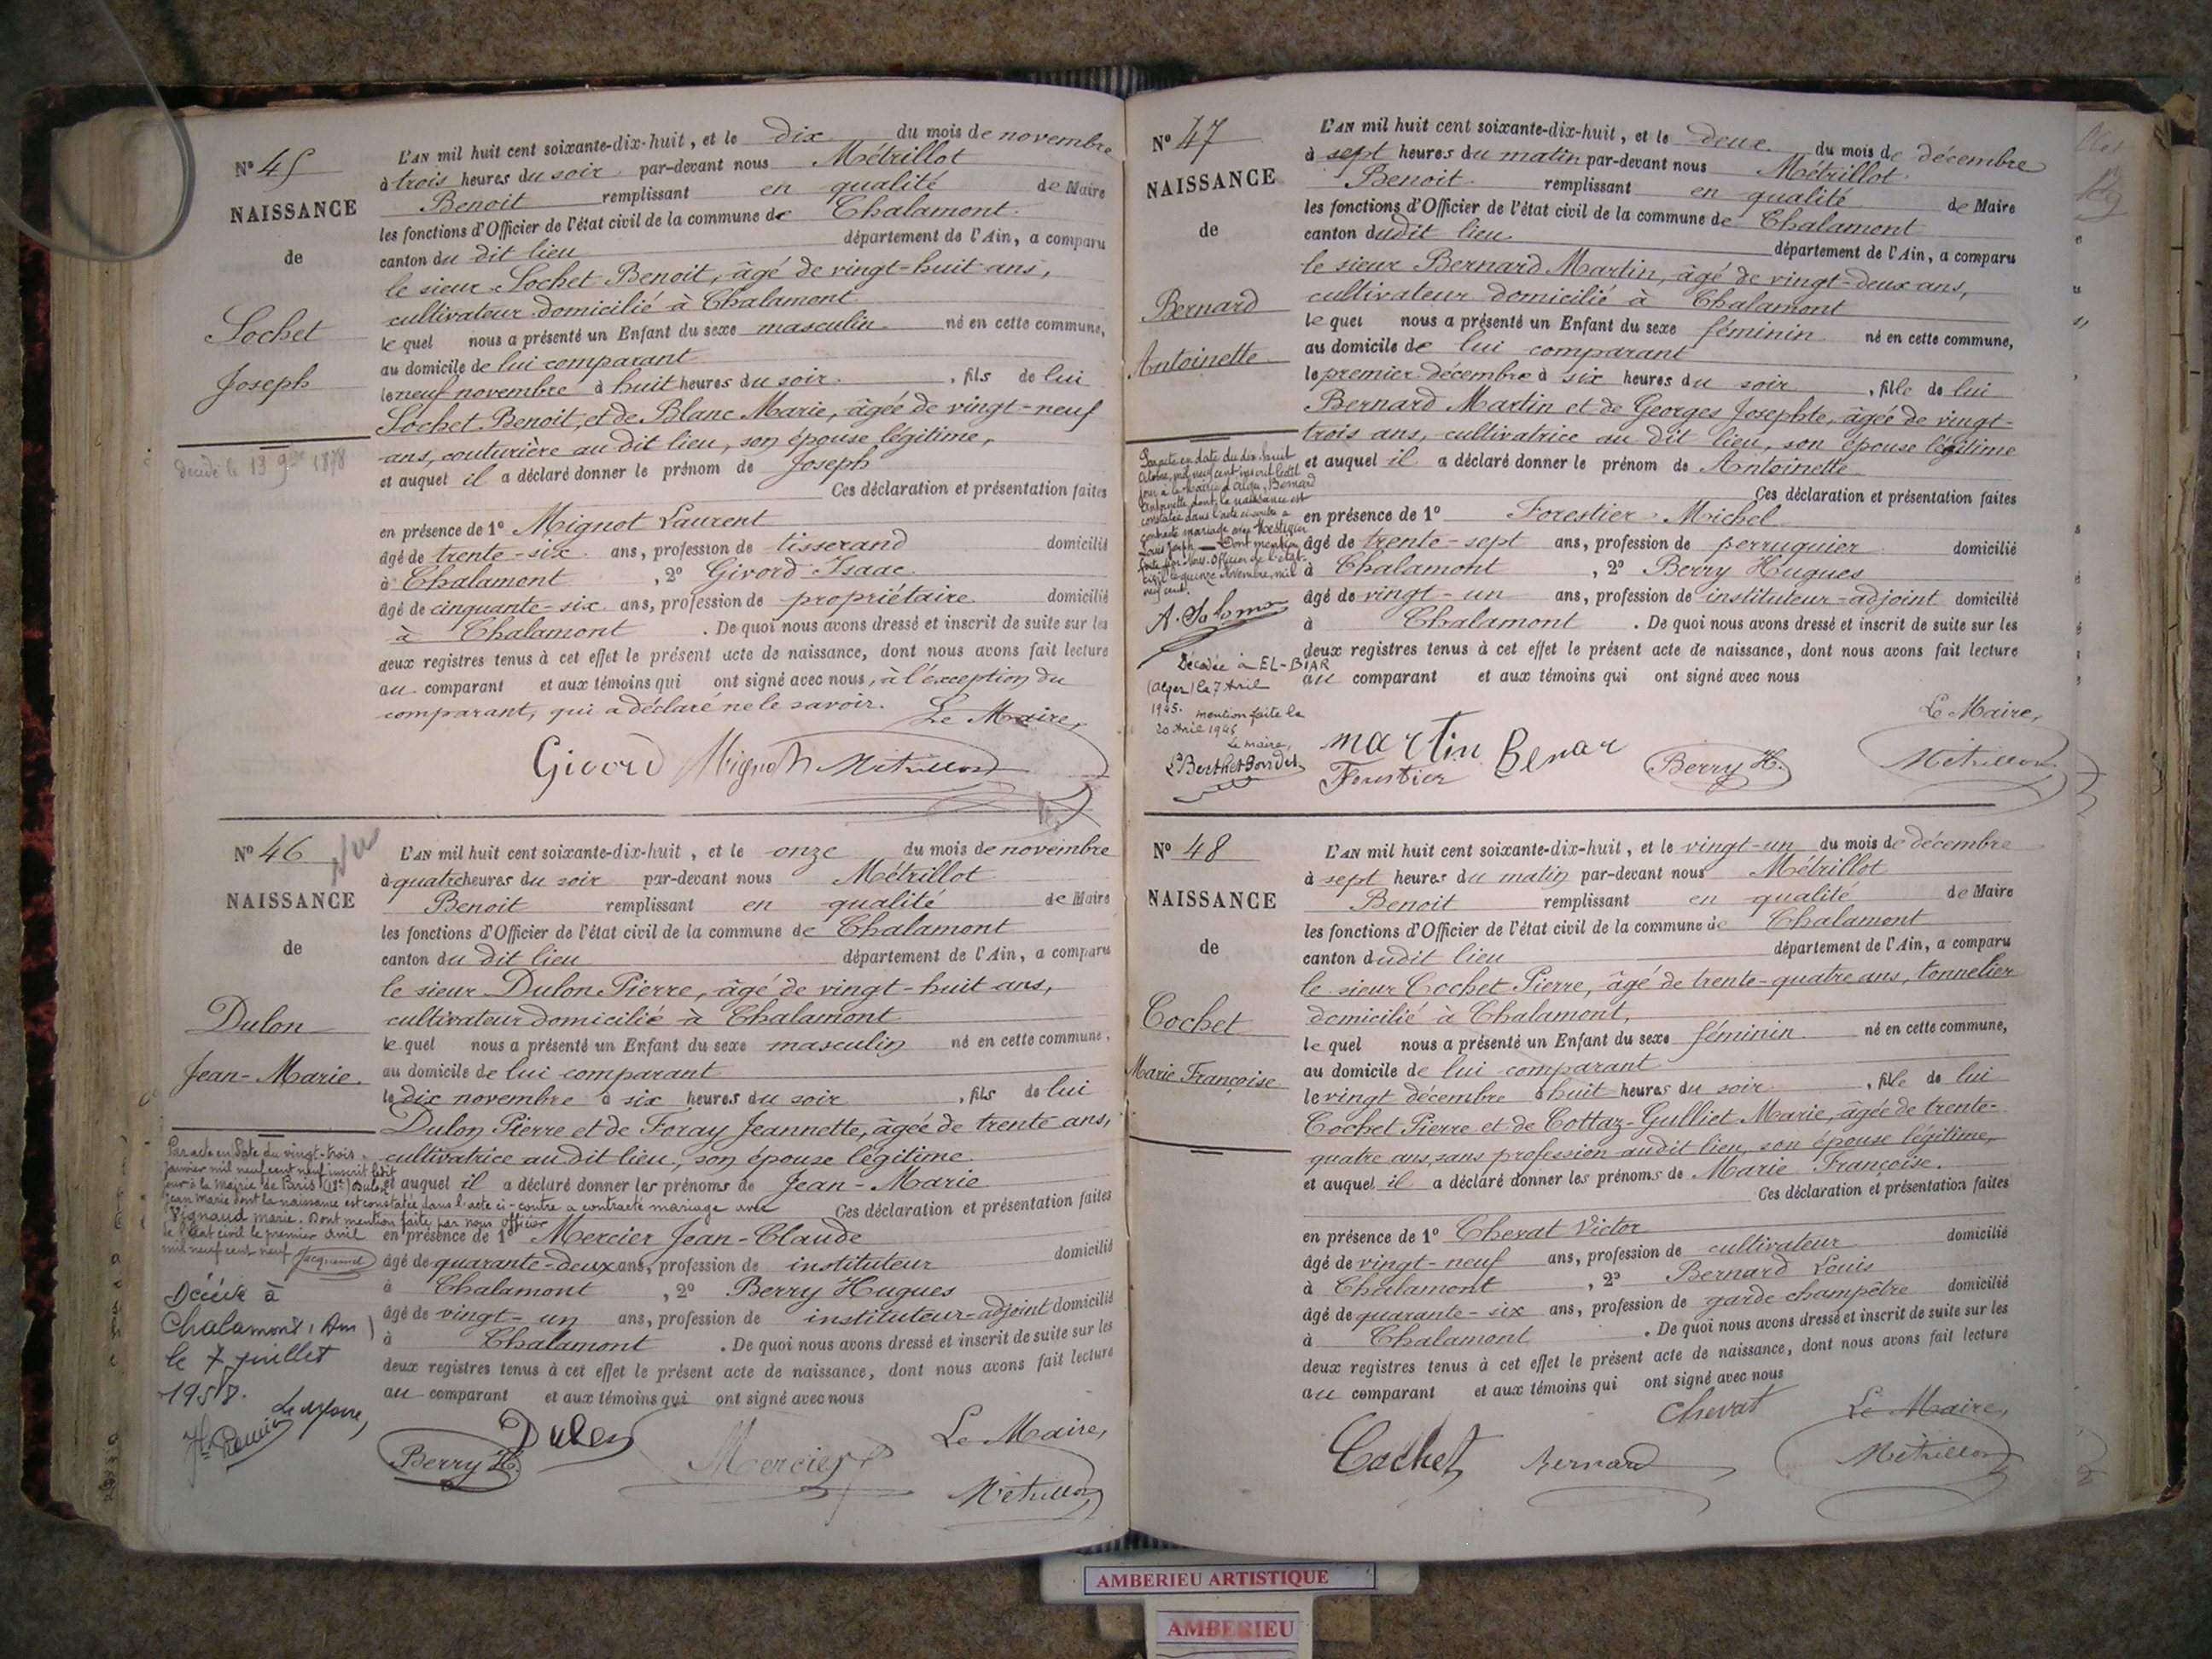 N° 45
NAISSANCE
de
Sochet
Joseph
décédé le 13 9bre 1878
L'AN mil huit cent soixante-dix-huit, et le dix du mois de novembre
à trois heures du soir par-devant nous Métrillot
Benoit remplissant en qualité de Maire
les fonctions d'Officier de l'état civil de la commune de Chalamont
canton du dit lieu département de l'Ain, a comparu
le sieur Sochet Benoit, âgé de vingt-huit ans,
cultivateur domicilié à Chalamont
le quel nous a présenté un Enfant du sexe masculin né en cette commune,
au domicile de lui comparant
le neuf novembre à huit heures du soir, fils de lui
Sochet Benoit, et de Blanc Marie, âgée de vingt-neuf
ans, couturière au dit lieu, son épouse légitime,
et auquel il a déclaré donner le prénom de Joseph
Ces déclaration et présentation faites
en présence de 1° Mignot Laurent
âgé de trente-six ans, profession de tisserand domicilié
à Chalamont, 2° Givord Isaac
âgé de cinquante-six ans, profession de propriétaire domicilié
à Chalamont. De quoi nous avons dressé et inscrit de suite sur les
deux registres tenus à cet effet le présent acte de naissance, dont nous avons fait lecture
au comparant et aux témoins qui ont signé avec nous, à l'exception du
comparant, qui a déclaré ne le savoir. Le Maire,
Givord Mignot Métrillot
N° 46
NAISSANCE
de
Dulon
Jean-Marie
Par acte en date du vingt-trois
Janvier mil neuf cent neuf inscrit ledit
jour à la mairie de Paris (18e) Dulon
Jean Marie dont la naissance est constatée dans l'acte ci-contre a contracté mariage avec
Vignaud Marie. Dont mention faite par nous officier
de l'état civil le premier avril
mil neuf cent neuf
Décédé à
Chalamont (Ain)
le 7 juillet
1958.
Le Maire,
L'AN mil huit cent soixante-dix-huit, et le onze du mois de novembre
à quatre heures du soir par-devant nous Métrillot
Benoit remplissant en qualité de Maire
les fonctions d'Officier de l'état civil de la commune de Chalamont
canton du dit lieu département de l'Ain, a comparu
le sieur Dulon Pierre, âgé de vingt-huit ans,
cultivateur domicilié à Chalamont
le quel nous a présenté un Enfant du sexe masculin né en cette commune,
au domicile de lui comparant
le dix novembre à six heures du soir, fils de lui
Dulon Pierre et de Foray Jeannette, âgée de trente ans,
cultivatrice au dit lieu, son épouse légitime
et auquel il a déclaré donner les prénoms de Jean-Marie
Ces déclaration et présentation faites
en présence de 1° Mercier Jean-Claude
âgé de quarante-deux ans, profession de instituteur domicilié
à Chalamont, 2° Berry Hugues
âgé de vingt-un ans, profession de instituteur-adjoint domicilié
à Chalamont. De quoi nous avons dressé et inscrit de suite sur les
deux registres tenus à cet effet le présent acte de naissance, dont nous avons fait lecture
au comparant et aux témoins qui ont signé avec nous
Le Maire,
Berry H. Dulon Mercier Métrillot
N° 47
NAISSANCE
de
Bernard
Antoinette
Par acte en date du dix huit
Octobre mil neuf cent inscrit ledit
jour à la mairie d'Alger, Bernard
Antoinette dont la naissance est
constatée dans l'acte ci-contre a
contracté mariage avec
Louis Joseph. Dont mention
faite par Nous Officier de l'état-
civil le quinze Novembre mil
neuf cent.
A. Salomon
Décédée à EL-BIAR
(Alger) le 7 Avril
1945. mention faite le
20 Avril 1945
Le maire,
L'AN mil huit cent soixante-dix-huit, et le deux du mois de décembre
à sept heures du matin par-devant nous Métrillot
Benoit remplissant en qualité de Maire
les fonctions d'Officier de l'état civil de la commune de Chalamont
canton dudit lieu département de l'Ain, a comparu
le sieur Bernard Martin, âgé de vingt-deux ans,
cultivateur domicilié à Chalamont
le quel nous a présenté un Enfant du sexe féminin né en cette commune,
au domicile de lui comparant
le premier décembre à six heures du soir, fille de lui
Bernard Martin et de Georges Josephte, âgée de vingt-
trois ans, cultivatrice au dit lieu, son épouse légitime
et auquel il a déclaré donner le prénom de Antoinette
Ces déclaration et présentation faites
en présence de 1° Forestier Michel
âgé de trente-sept ans, profession de perruquier domicilié
à Chalamont, 2° Berry Hugues
âgé de vingt-un ans, profession de instituteur-adjoint domicilié
à Chalamont. De quoi nous avons dressé et inscrit de suite sur les
deux registres tenus à cet effet le présent acte de naissance, dont nous avons fait lecture
au comparant et aux témoins qui ont signé avec nous
Le Maire,
Martin Benar Berry H. Métrillot
Forestier
N° 48
NAISSANCE
de
Cochet
Marie Françoise
L'AN mil huit cent soixante-dix-huit, et le vingt-un du mois de décembre
à sept heures du matin par-devant nous Métrillot
Benoit remplissant en qualité de Maire
les fonctions d'Officier de l'état civil de la commune de Chalamont
canton dudit lieu département de l'Ain, a comparu
le sieur Cochet Pierre, âgé de trente-quatre ans, tonnelier
domicilié à Chalamont,
le quel nous a présenté un Enfant du sexe féminin né en cette commune,
au domicile de lui comparant
le vingt décembre à huit heures du soir, fille de lui
Cochet Pierre et de Cottaz-Gulliet Marie, âgée de trente-
quatre ans, sans profession audit lieu, son épouse légitime,
et auquel il a déclaré donner les prénoms de Marie Françoise.
Ces déclaration et présentation faites
en présence de 1° Chevat Victor
âgé de vingt-neuf ans, profession de cultivateur domicilié
à Chalamont, 2° Bernard Louis
âgé de quarante-six ans, profession de garde champêtre domicilié
à Chalamont. De quoi nous avons dressé et inscrit de suite sur les
deux registres tenus à cet effet le présent acte de naissance, dont nous avons fait lecture
au comparant et aux témoins qui ont signé avec nous
Chevat Le Maire,
Cochet Bernard Métrillot
AMBERIEU ARTISTIQUE
AMBERIEU